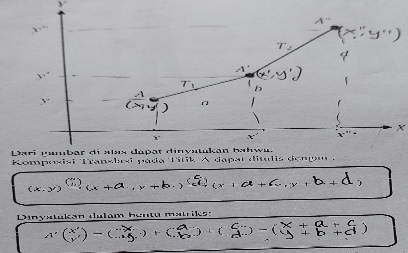 y
y''' A'' (x'', y'')
T₂ d
y'' A' (x', y')
A T₁ b
y' (x, y) a
x x' x'' X
Dari gambar di atas dapat dinyatakan bahwa.
Komposisi Translasi pada Titik A dapat ditulis dengan :
(x, y) (a b) (x + a, y + b) (c d) (x + a + c, y + b + d)
Dinyatakan dalam bentu matriks:
A' (x' y') = (x y) + (a b) + (c d) = (x + a + c y + b + d)